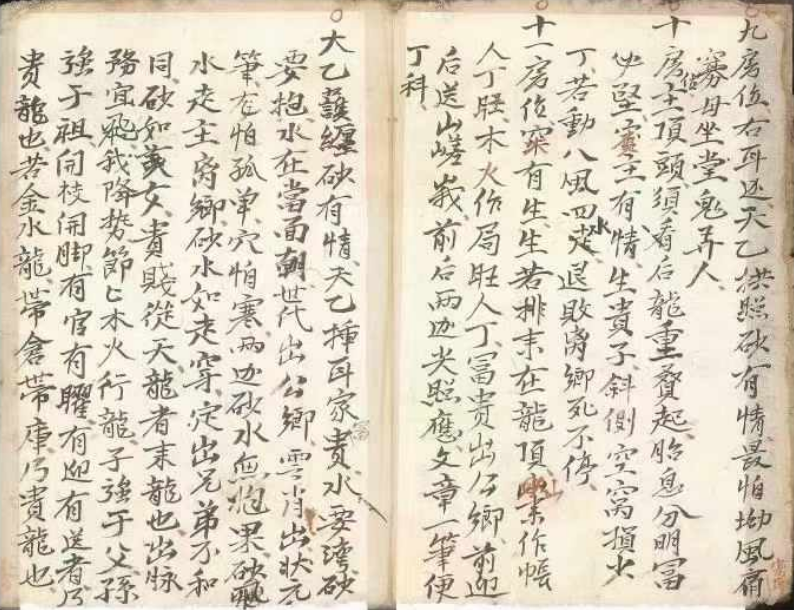 九房位右耳边天乙拱照砂有情最怕坳風痟
寡母坐堂鬼弄人
十房位主頂頭須看后龍重叠起胎息分明冨
必堅灵主有情生貴子斜側空窝損少
丁若動八風四水走退敗离鄉死不停
十一房位穴有生生若排来在龍頂来作帳
人丁旺木火作局旺人丁冨貴出公卿前迎
后送山嵯峩前后两边尖照應文章一筆便
丁科
大乙護纏砂有情天乙插耳家冨貴水要湾砂
要抱水在當面朝世代出公卿雲霄出狀元
筆在怕孤单穴怕寒两边砂水無抱果砂飛
水走主离鄉砂水如走穿定出兄弟不和
同砂如美女貴賤從夫龍者来龍也出脉
務宜飛我降势節匕木火行龍子強于父孫
強于祖開枝開脚有官有曜有迎有送者乃
贵龍也若金水龍帶倉帶庫乃貴龍也